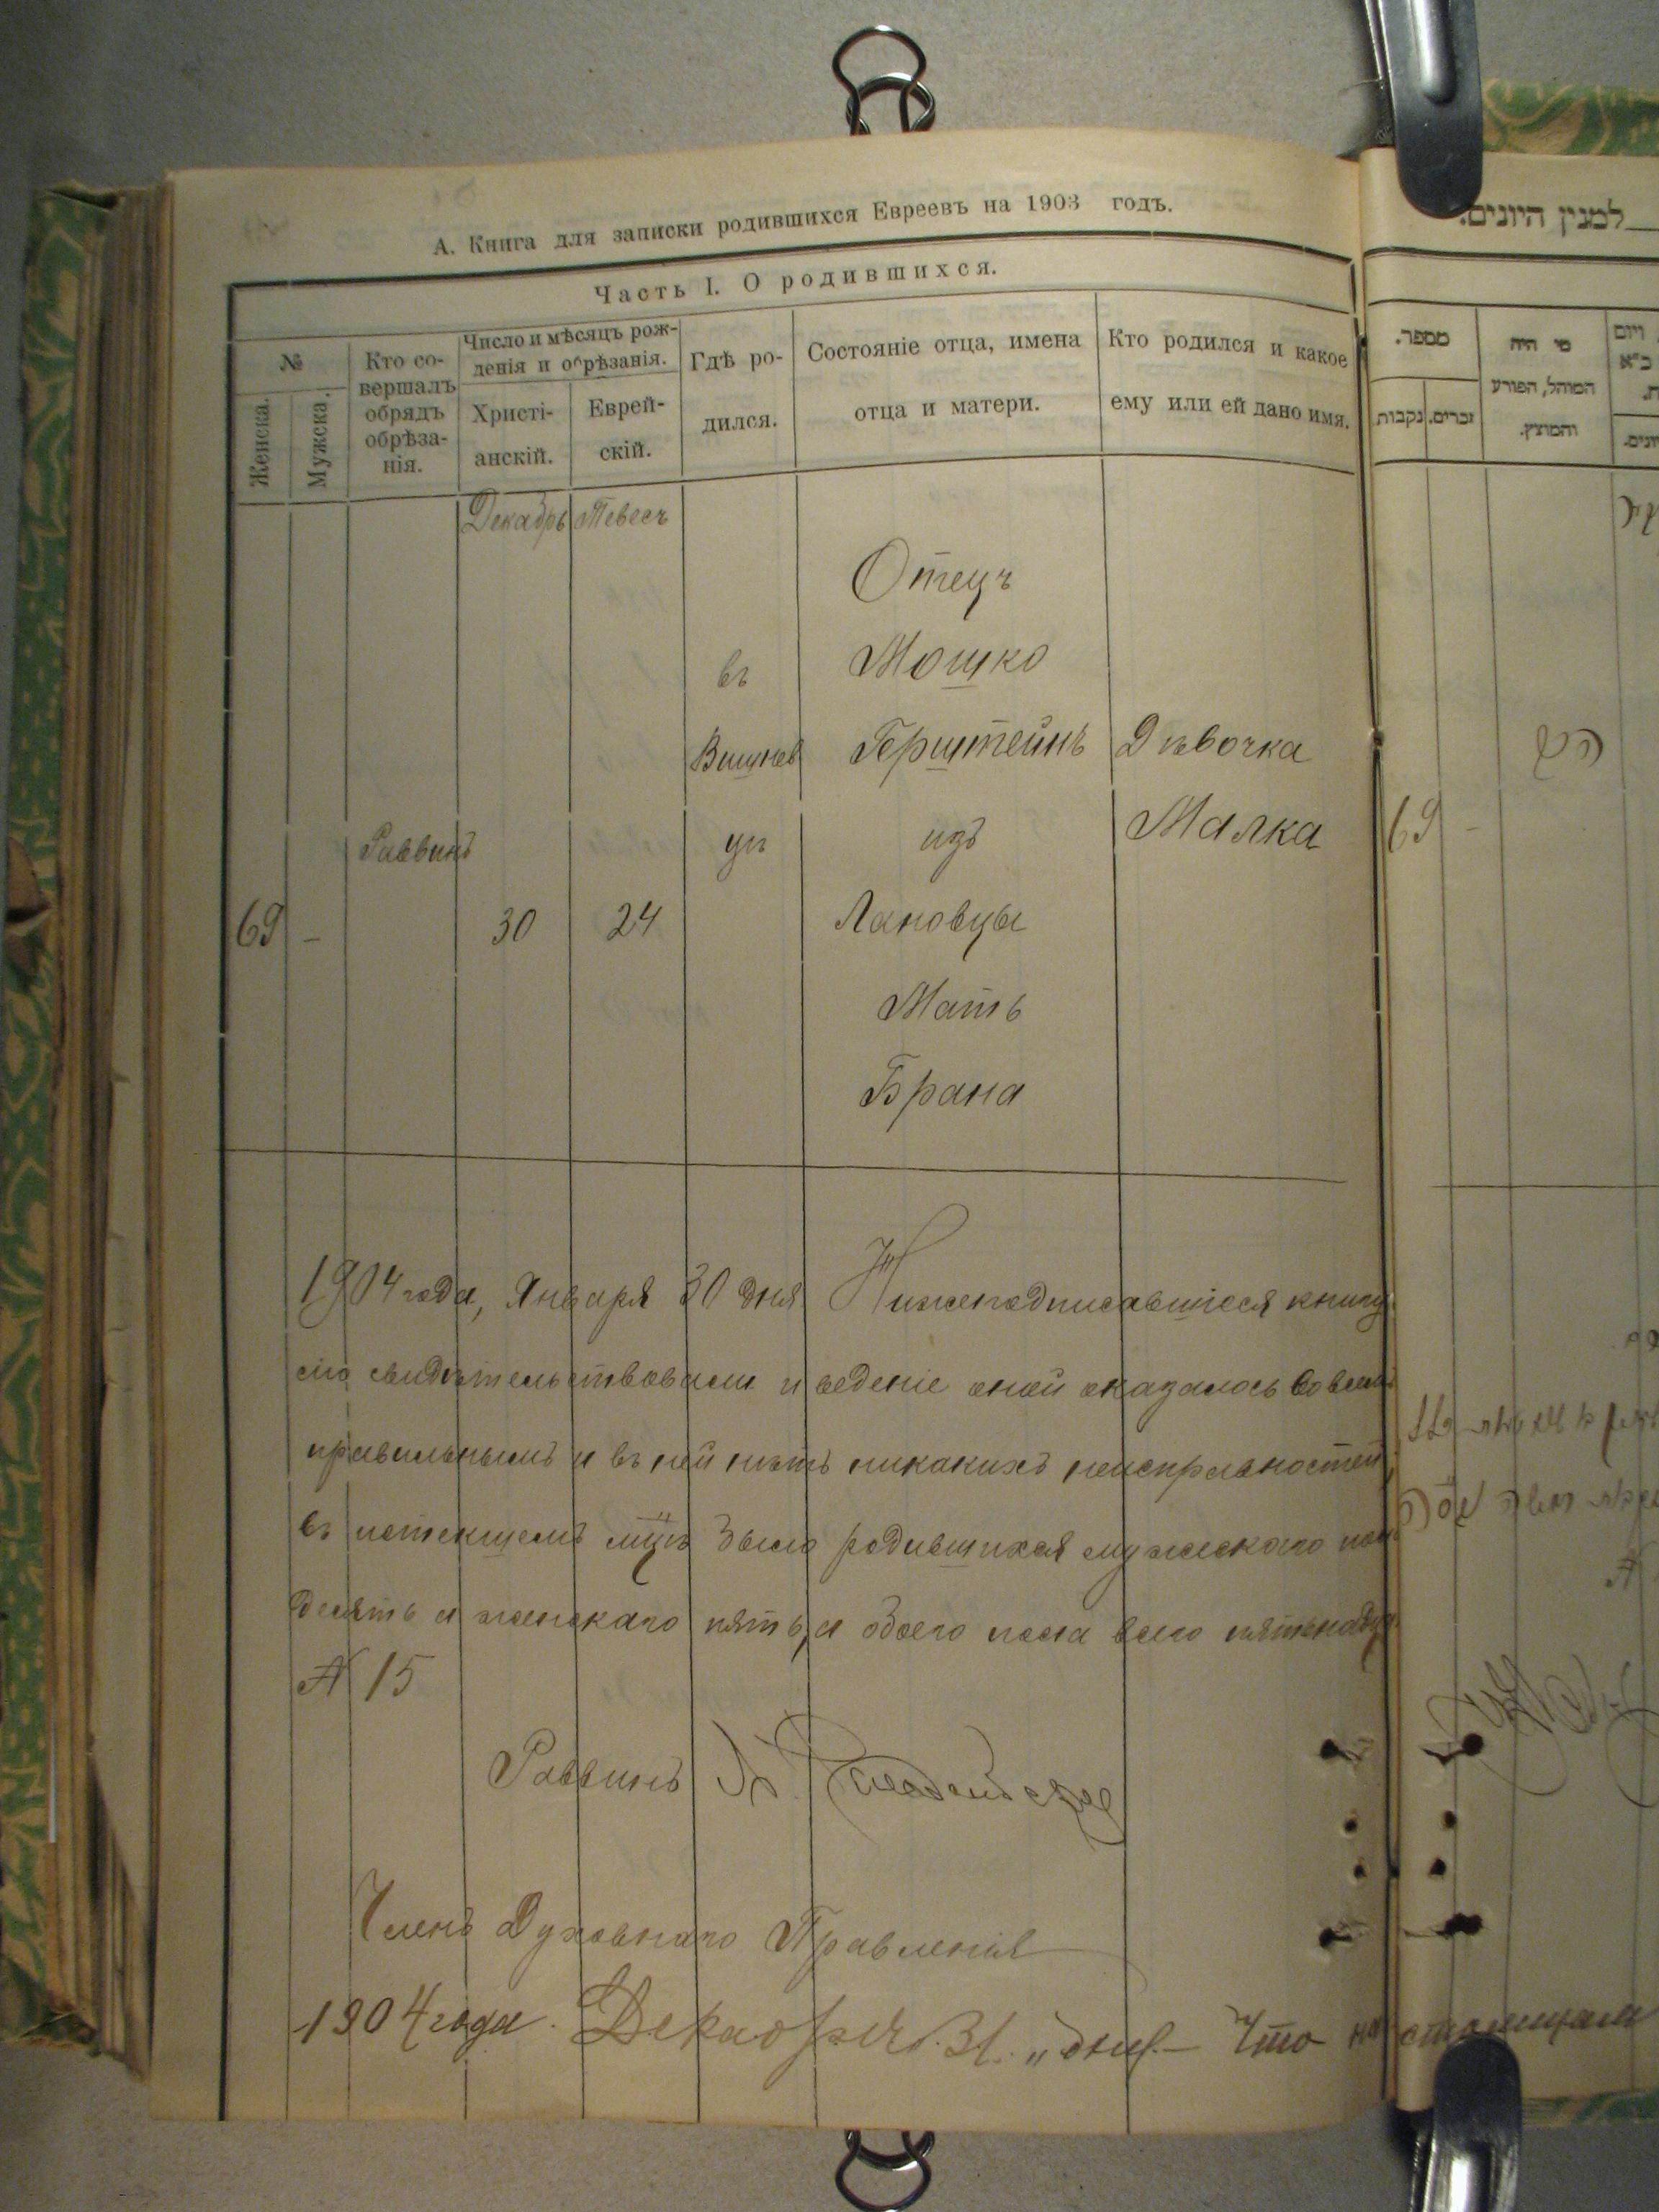 А. Книга для записки родившихся Евреевъ на 1903 годъ.
Часть I. О родившихся.
№
Женска.
Мужска.
Кто со-
вершалъ
обрядъ
обрѣза-
нія.
Число и мѣсяцъ рож-
денія и обрѣзанія.
Христі-
анскій.
Еврей-
скій.
Гдѣ ро-
дился.
Состояніе отца, имена
отца и матери.
Кто родился и какое
ему или ей дано имя.
Декабрь
Тевесъ
69
-
Раввинъ
30
24
въ
Вишнев
цѣ
Отецъ
Мошко
Герштейнъ
изъ
Лановцы
Мать
Брана
Дѣвочка
Малка
1904 года, Января 30 дня Нижеподписавшіеся книгу
сію свидѣтельствовали и веденіе оной оказалось во всемъ
правильнымъ и въ ней нѣтъ никакихъ неисправностей,
въ истекшемъ мцѣ было родившихся мужескаго пола
десять и женскаго пять, а обоего пола всего пятьнадц.
№ 15
Раввинъ
Членъ Духовнаго Правленія
1904 года. Декабря 31 „ дня.- Что на страницам
למנין היונים.
מספר.
נקבות
זכרים.
מי היה
המוהל, הפורע
והמוצץ.
ויום
69 -
הרב